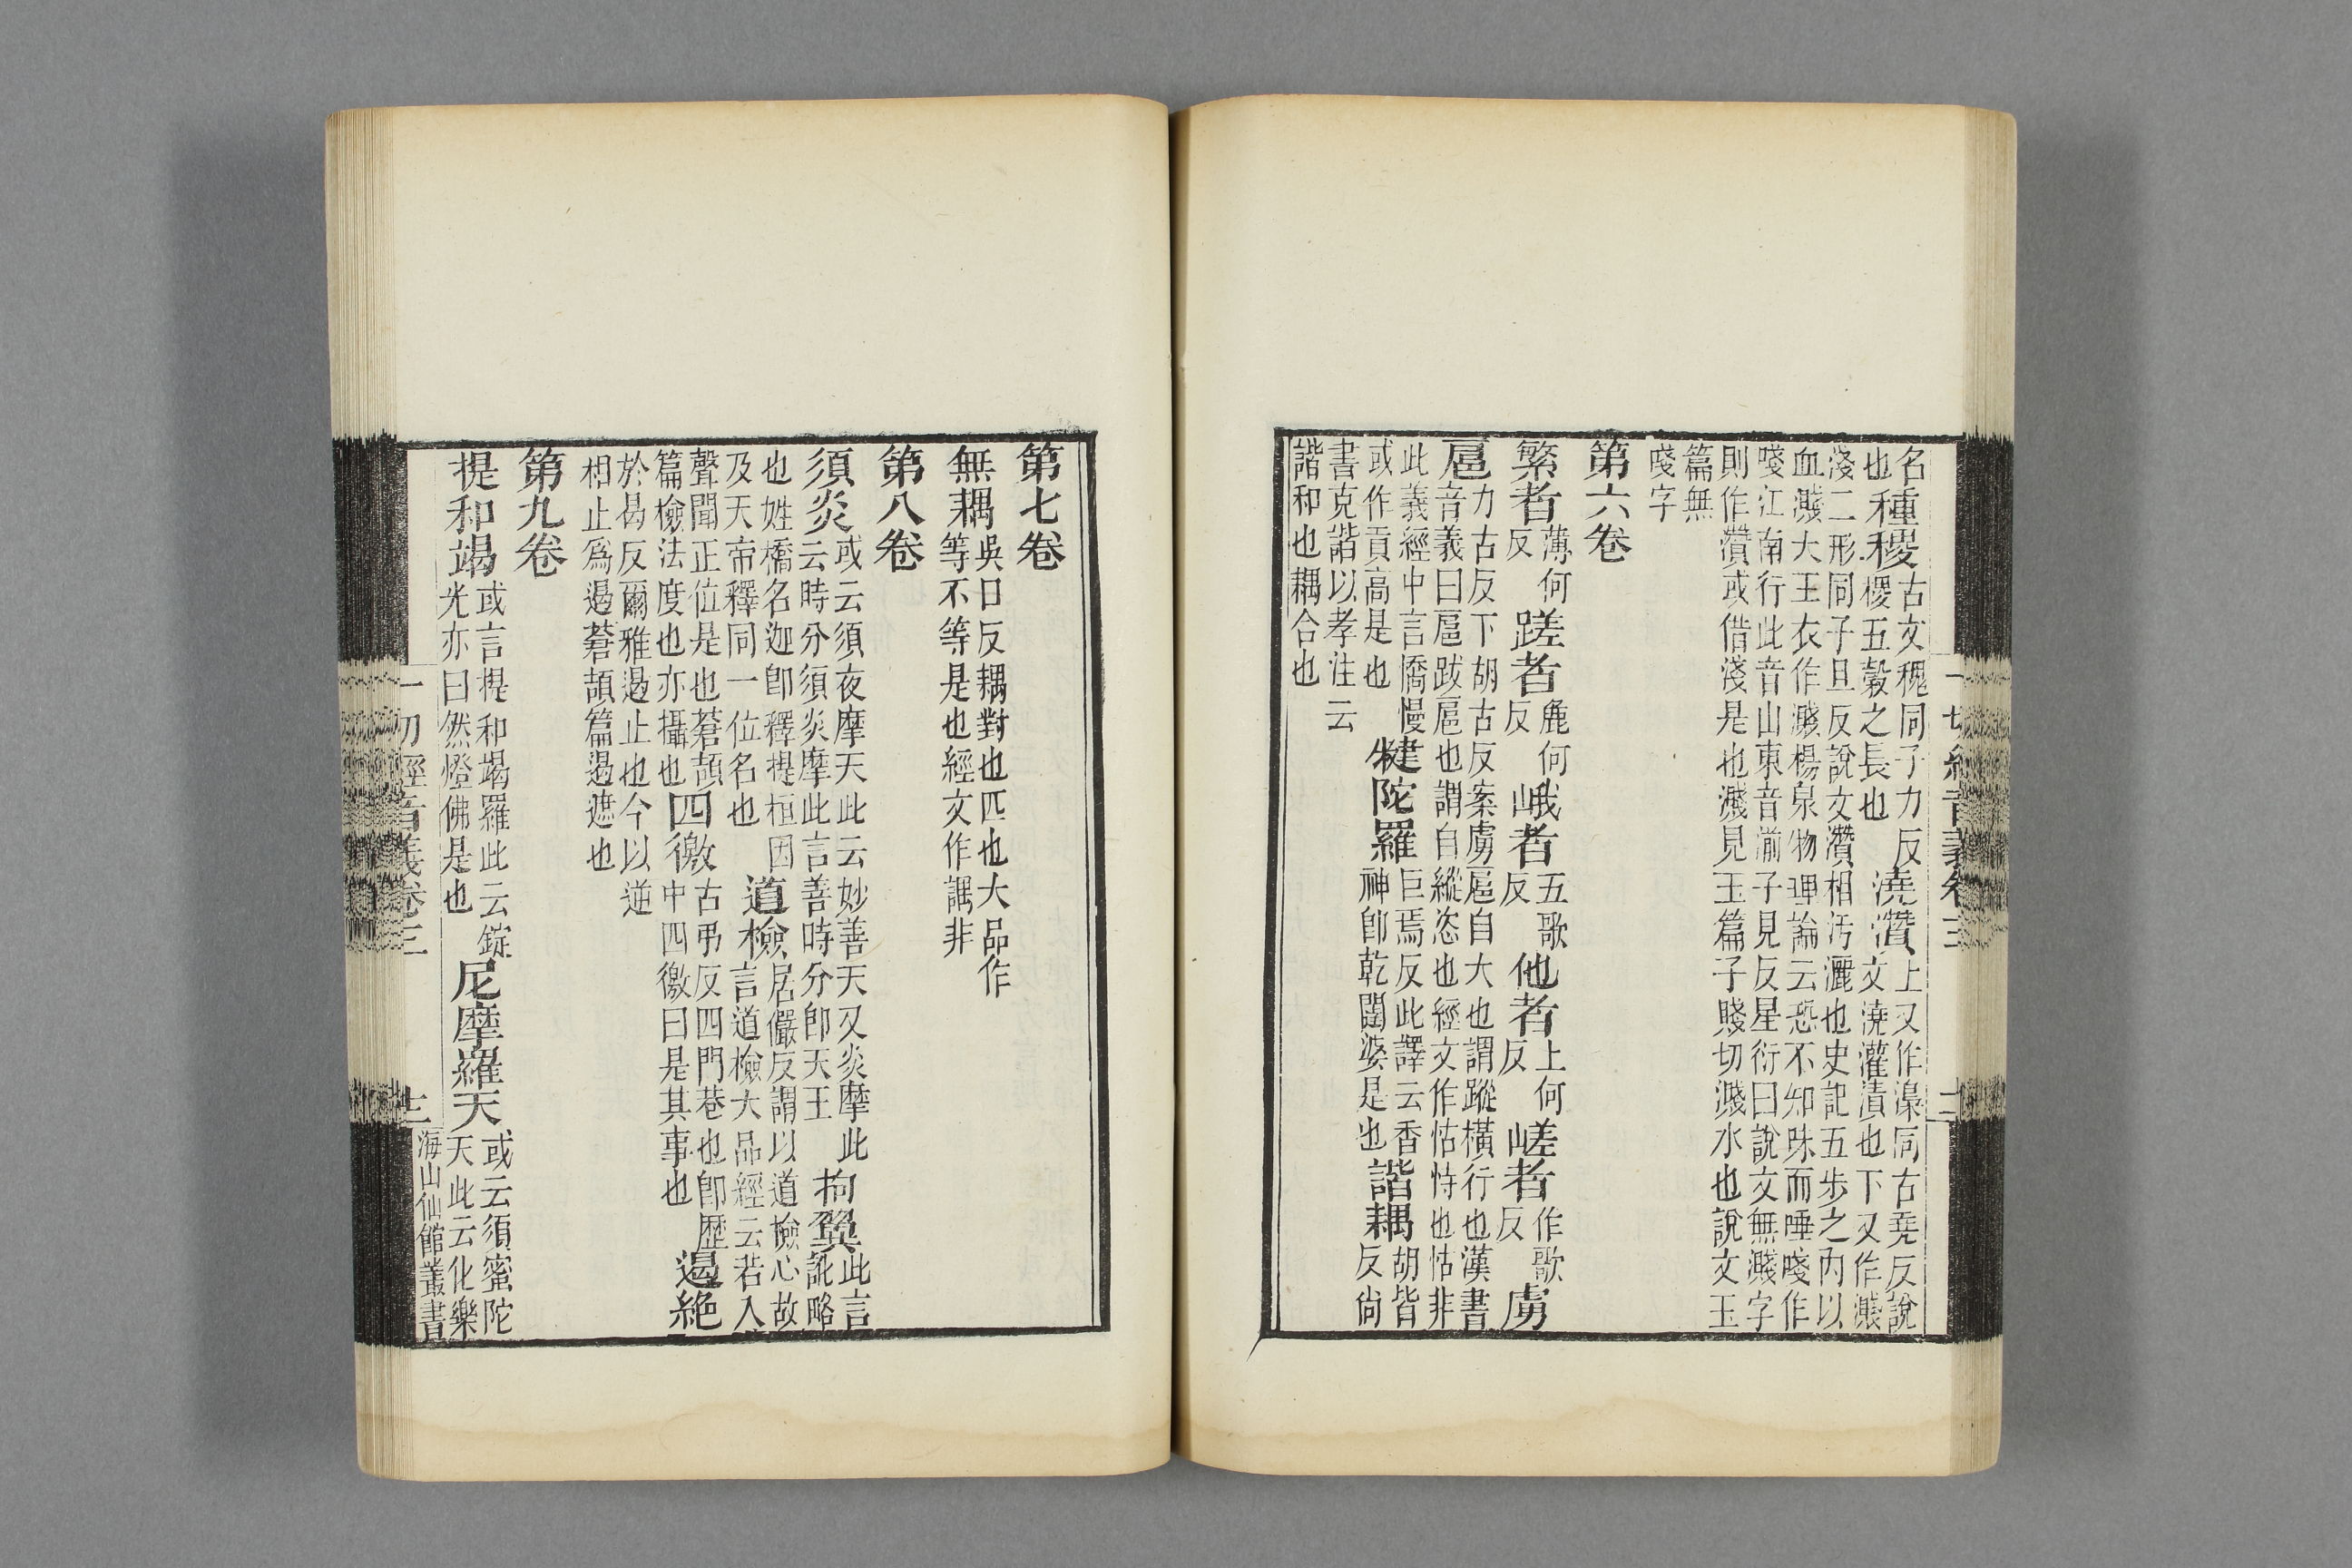 名
也種稷古文稷同子力反
稷五穀之長也澆灒上又作澡同古堯反說
文澆灌漬也下又作濺
淺二形同子旦反說文灒相汚灑也史記五步之內以
血濺大王衣作濺楊泉物理論云恐不知味而唾㖡作
㖡江南行此音山東音湔子見反星衍曰說文無濺字
則作灒或借淺是也濺見玉篇子賤切濺水也說文玉
篇無
㖡字
第六卷
繁者薄何反蹉者麁何反峨者五歌反他者上何反嵯者作歌反虜
扈力古反下胡古反案虜扈自大也謂蹤橫行也漢書
音義曰扈跋扈也謂自縱恣也經文作怙恃也怙非
此義經中言憍慢
或作貢高是也犍陀羅巨焉反此譯云香
神卽乾闥婆是也諧耦胡皆
反尙
書克諧以孝注云
諧和也耦合也
一切經音義卷三
十二
第七卷
無耦吳口反耦對也匹也大品作
等不等是也經文作調非
第八卷
須炎或云須夜摩天此云妙善天又炎摩此
云時分須炎摩此言善時分卽天王拘翼此言
訛略
也姓橋名迦卽釋提桓因
及天帝釋同一位名也道檢居儼反謂以道檢心故
言道檢大品經云若入
聲聞正位是也蒼頡
篇檢法度也亦攝也四徼古弔反四門巷也卽歷
中四徼曰是其事也遏絶
於曷反爾雅遏止也今以逆
相止爲遏蒼頡篇遏遮也
第九卷
提和竭或言提和竭羅此云錠
光亦曰然燈佛是也尼摩羅天或云須蜜陀
天此云化樂
一切經音義卷三
十二
海山仙館叢書